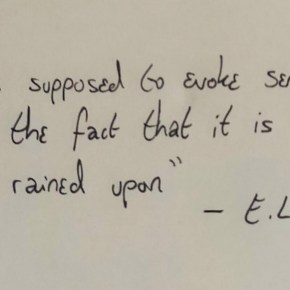 supposed to evoke
the fact that it is
rained upon"
- E.L